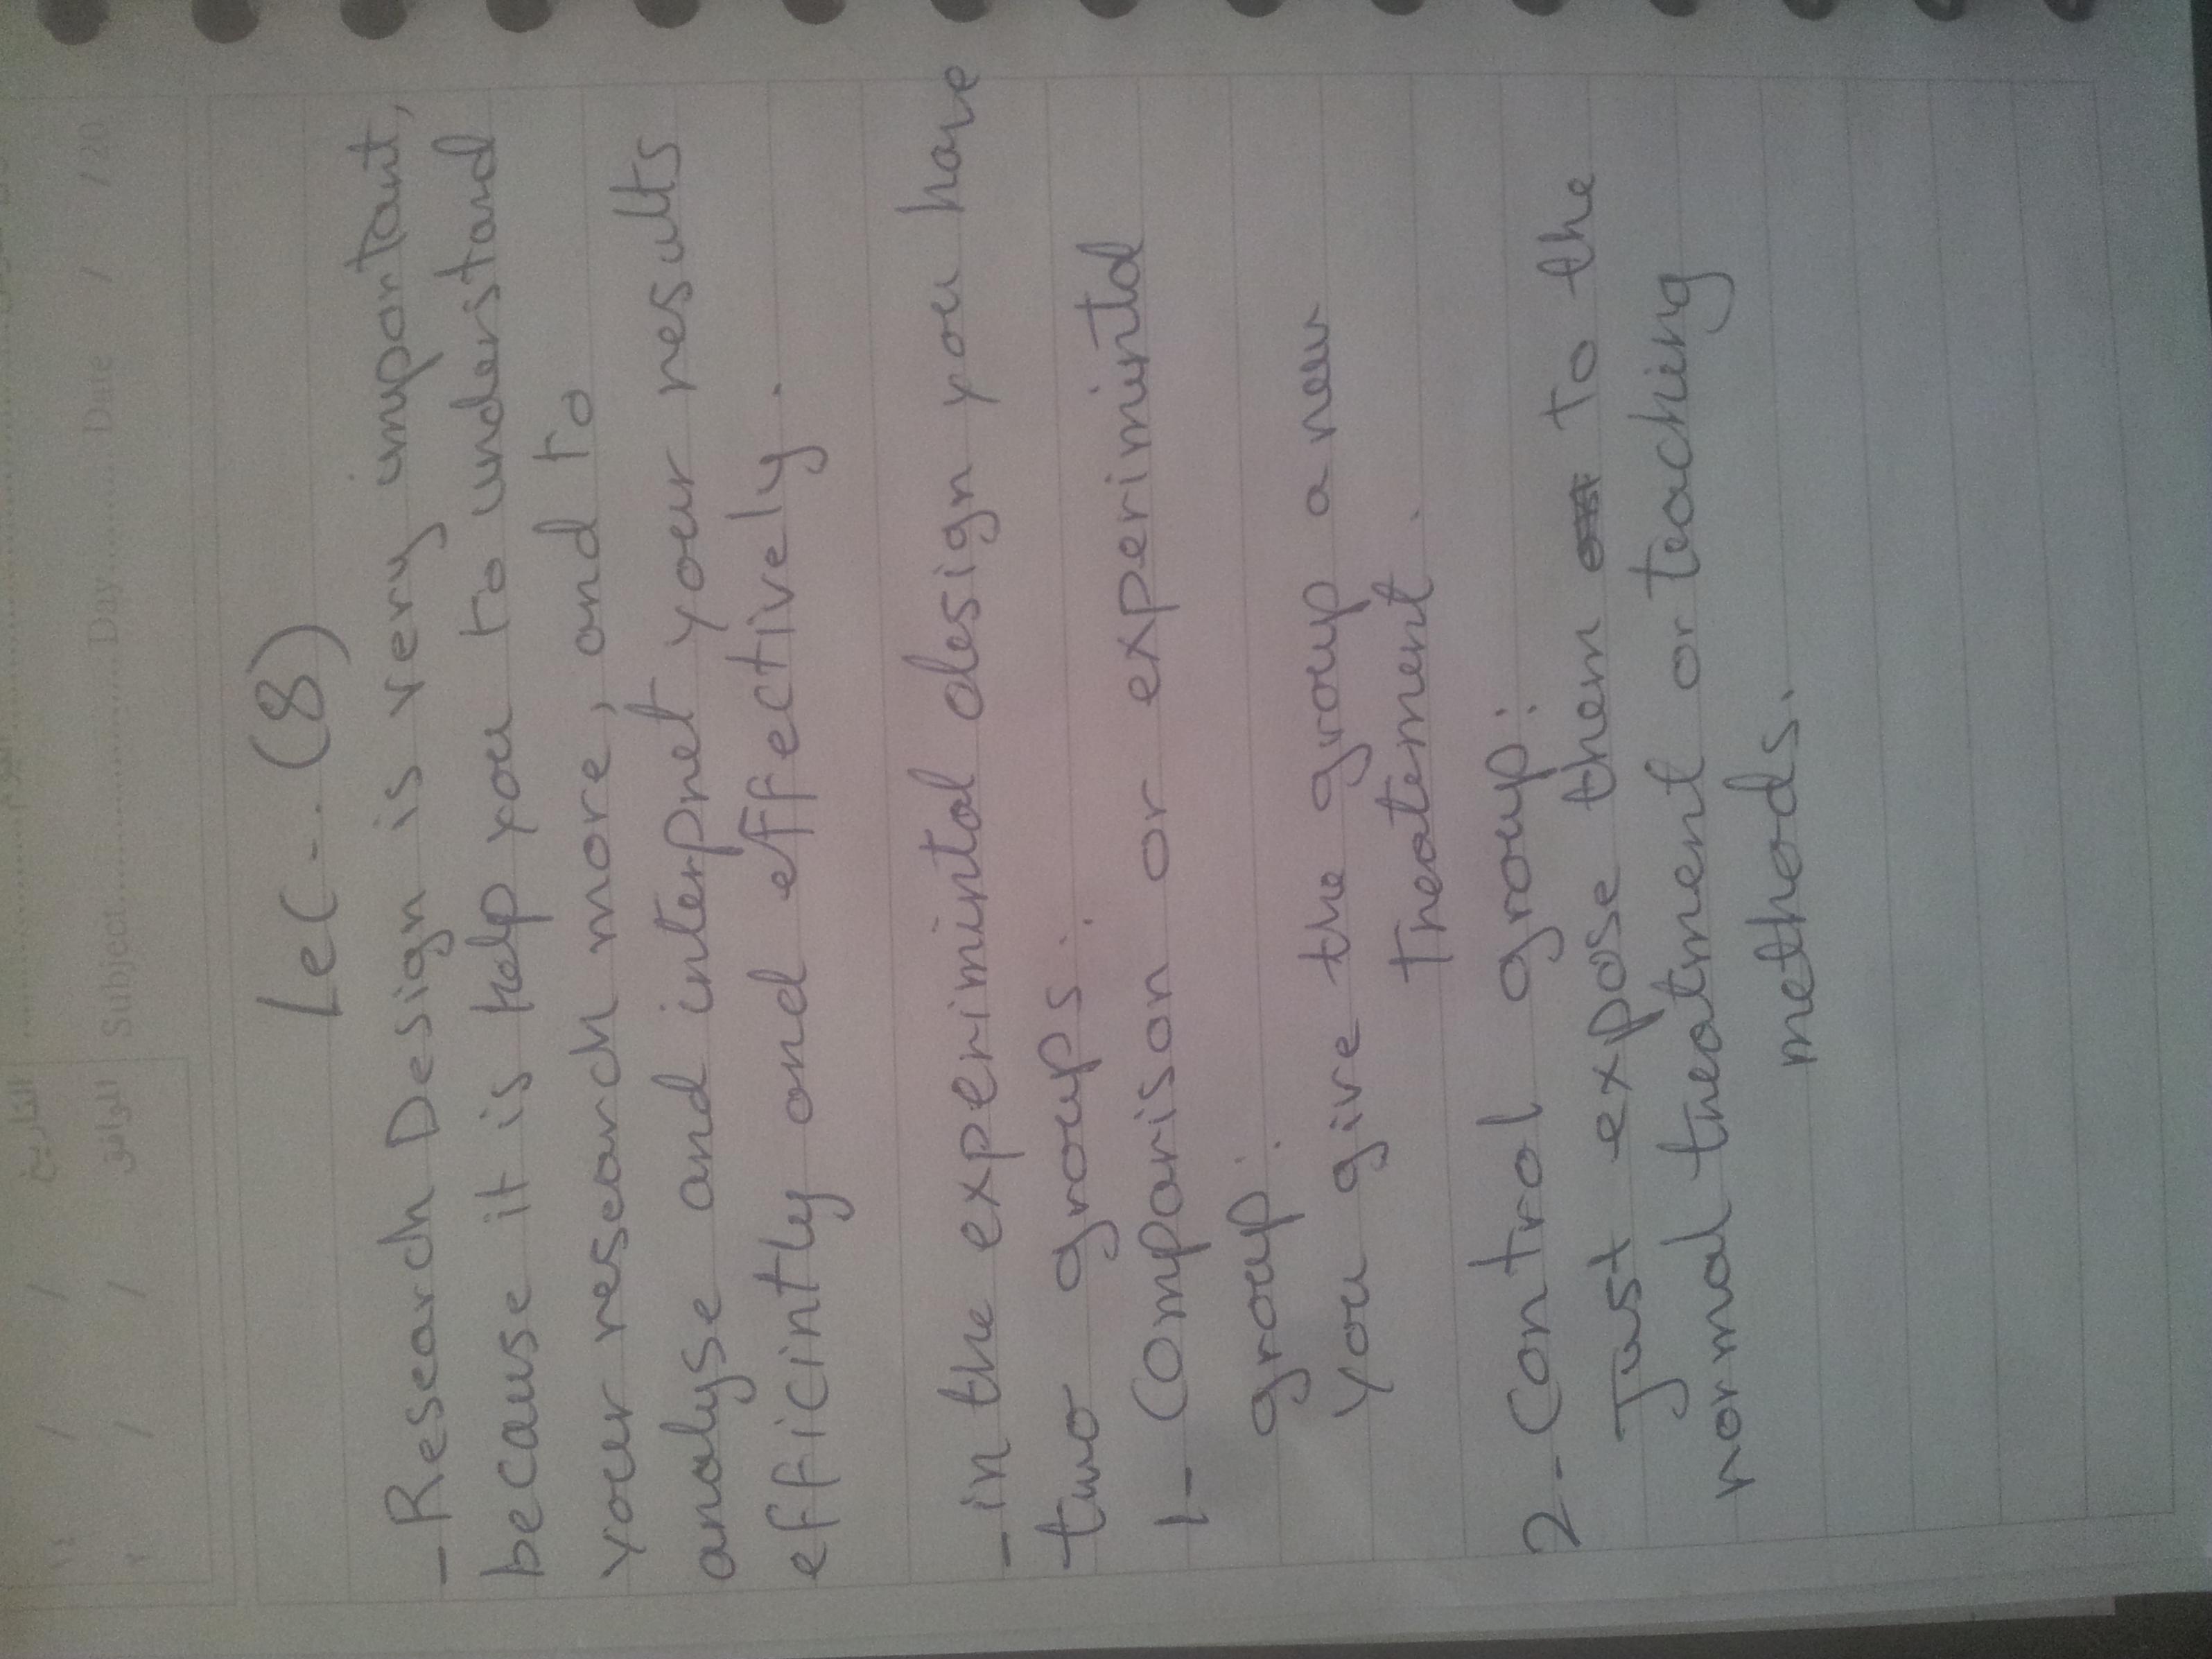 Subject............ Day............ Date / / 20
الموافق / /
التاريخ / /
Lec-. (8)
- Research Design is very important,
because it is help you to understand
your research more, and to
analyse and interpret your results
efficintly and effectively.
- in the experimintal design you have
two groups:
1- Comparison or experimintal
group:
you give the group a new
treatement.
2- Control group:
Just expose them to the
normal treatment or teaching
methods.